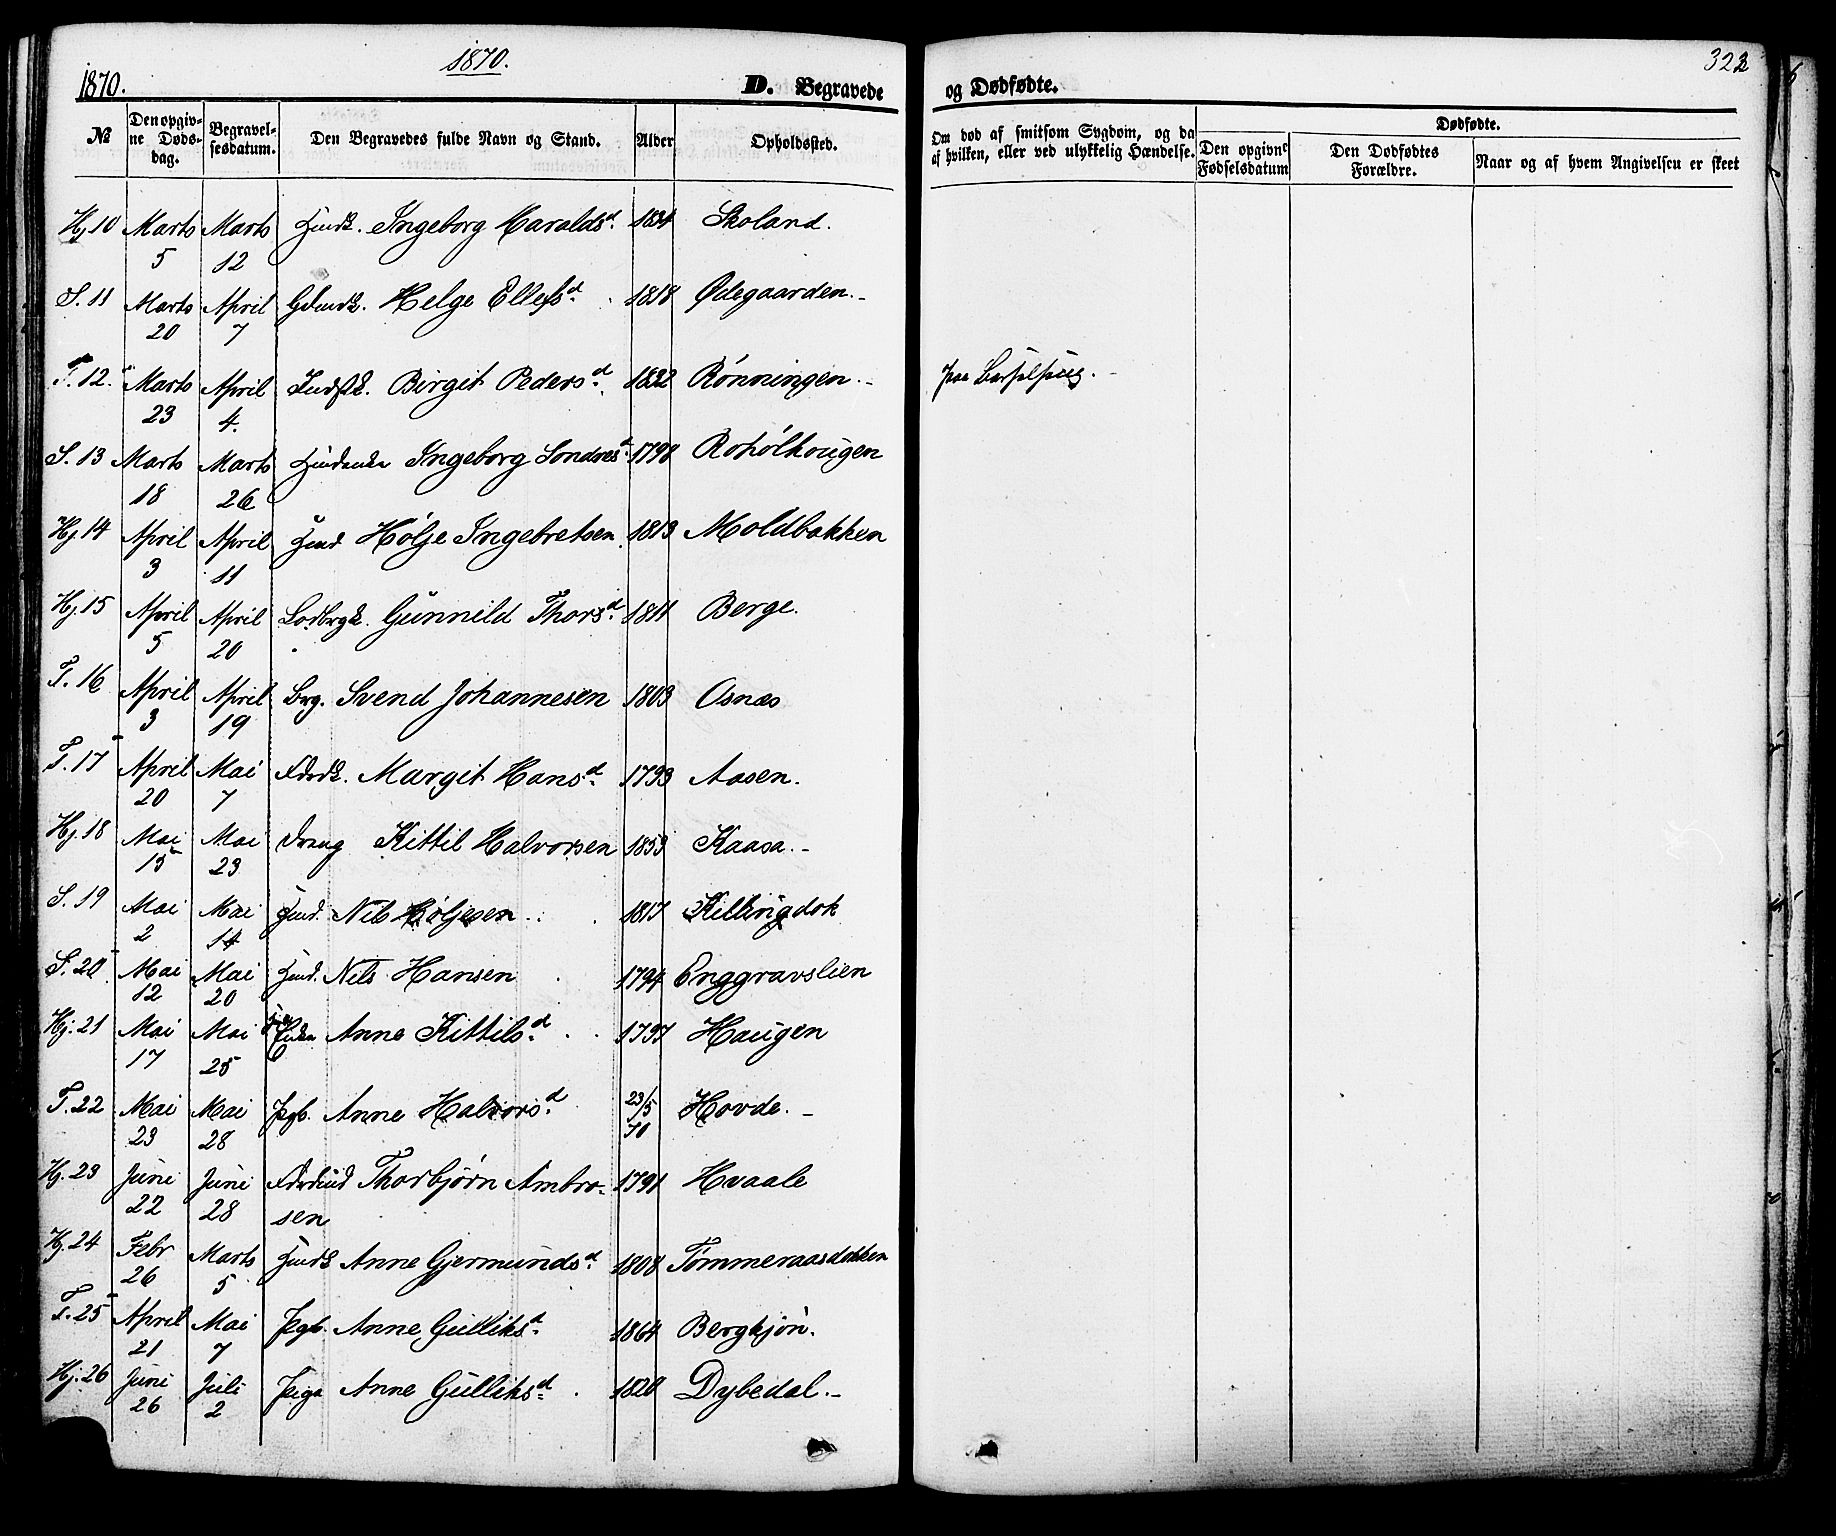 1870.
1870.
D. Begravede
og Dødfødte.
322
№
Den opgivne Dødsdag.
Begravelsesdatum.
Den Begravedes fulde Navn og Stand.
Alder
Opholdssted.
Om død af smitsom Sygdom, og da
af hvilken, eller ved ulykkelig Hændelse.
Den opgivne
Fødselsdatum
Dødfødte.
Den Dødfødtes
Forældre.
Naar og af hvem Angivelsen er skeet
Hj. 10 Marts 5 Marts 12 Ingeborg Haraldsd. 1834 Skoland.
S. 11 Marts 20 April 7 Helge Ellefsd. 1818 Ødegaarden.-
T. 12. Marts 23 April 4. Birgit Pedersd. 1832 Rønningen.- paa Barselseng.
S. 13 Marts 18 Marts 26 Ingeborg Sondresd. 1798 Roholhougen
Hj. 14 April 3 April 11 Hølje Ingebretsen. 1813 Moldbakken
Hj. 15 April 5 April 20 Gunnild Thorsd. 1811 Berge.
T. 16 April 3 April 19 Svend Johannesen 1803 Osnæs
T. 17 April 20 Mai 7 Margit Hansd. 1793 Aasen.
Hj. 18 Mai 15 Mai 23 Dreng Kittil Halvorsen 1853 Kaasa.-
S. 19 Mai 2 Mai 14 Nils Høljesen 1817 Killingdok
S. 20. Mai 12 Mai 20 Nils Hansen 1794 Enggravslien
Hj. 21 Mai 17 Mai 25 Anne Kittilsd. 1797 Haugen
T. 22 Mai 23 Mai 28 Pgb. Anne Halvorsd. 23/5 70 Hovde.-
Hj. 23 Juni 22 Juni 28 Thorbjørn Ambro-
sen 1791 Hvaale
Hj. 24 Febr 26 Marts 5 Anne Gjermundsd. 1808 Tømmeraasdokken
T. 25 April 21 Mai 7 Pgb. Anne Gulliksd. 1864 Bergkjøn.
Hj. 26 Juni 26 Juli 2 Pige Anne Gulliksd. 1820 Dybedal.-